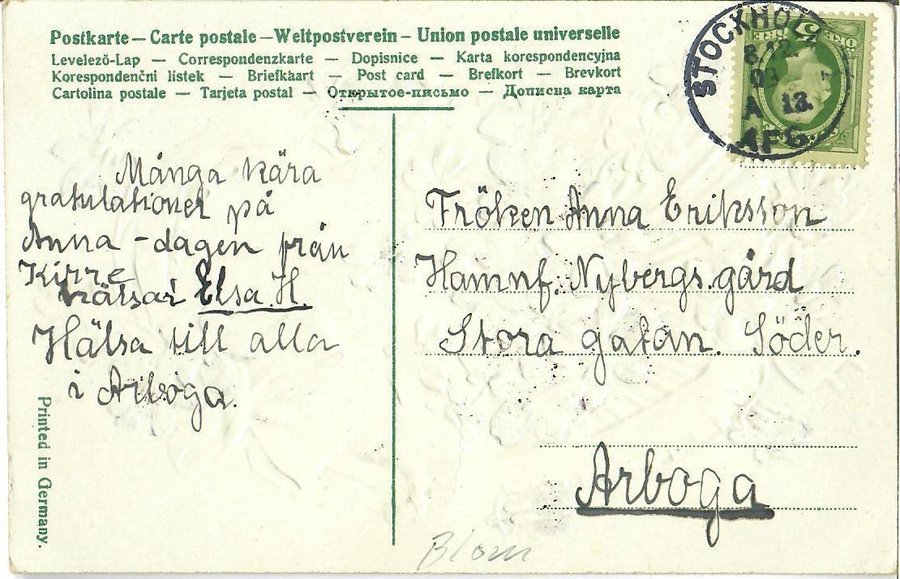 Postkarte — Carte postale — Weltpostverein — Union postale universelle
Levelező-Lap — Correspondenzkarte — Dopisnice — Karta korespondencyjna
Korespondenční listek — Briefkaart — Post card — Brefkort — Brevkort
Cartolina postale — Tarjeta postal — Открытое-письмо — Дописна карта
STOCKHOLM
A 13.
AFG.
5
Många kära
gratulationer på
Anna-dagen från
Kirre
hälsar Elsa H.
Hälsa till alla
i Arboga.
Fröken Anna Eriksson
Hamnf. Nybergs gård
Stora gatan. Söder.
Arboga
Printed in Germany.
Blom